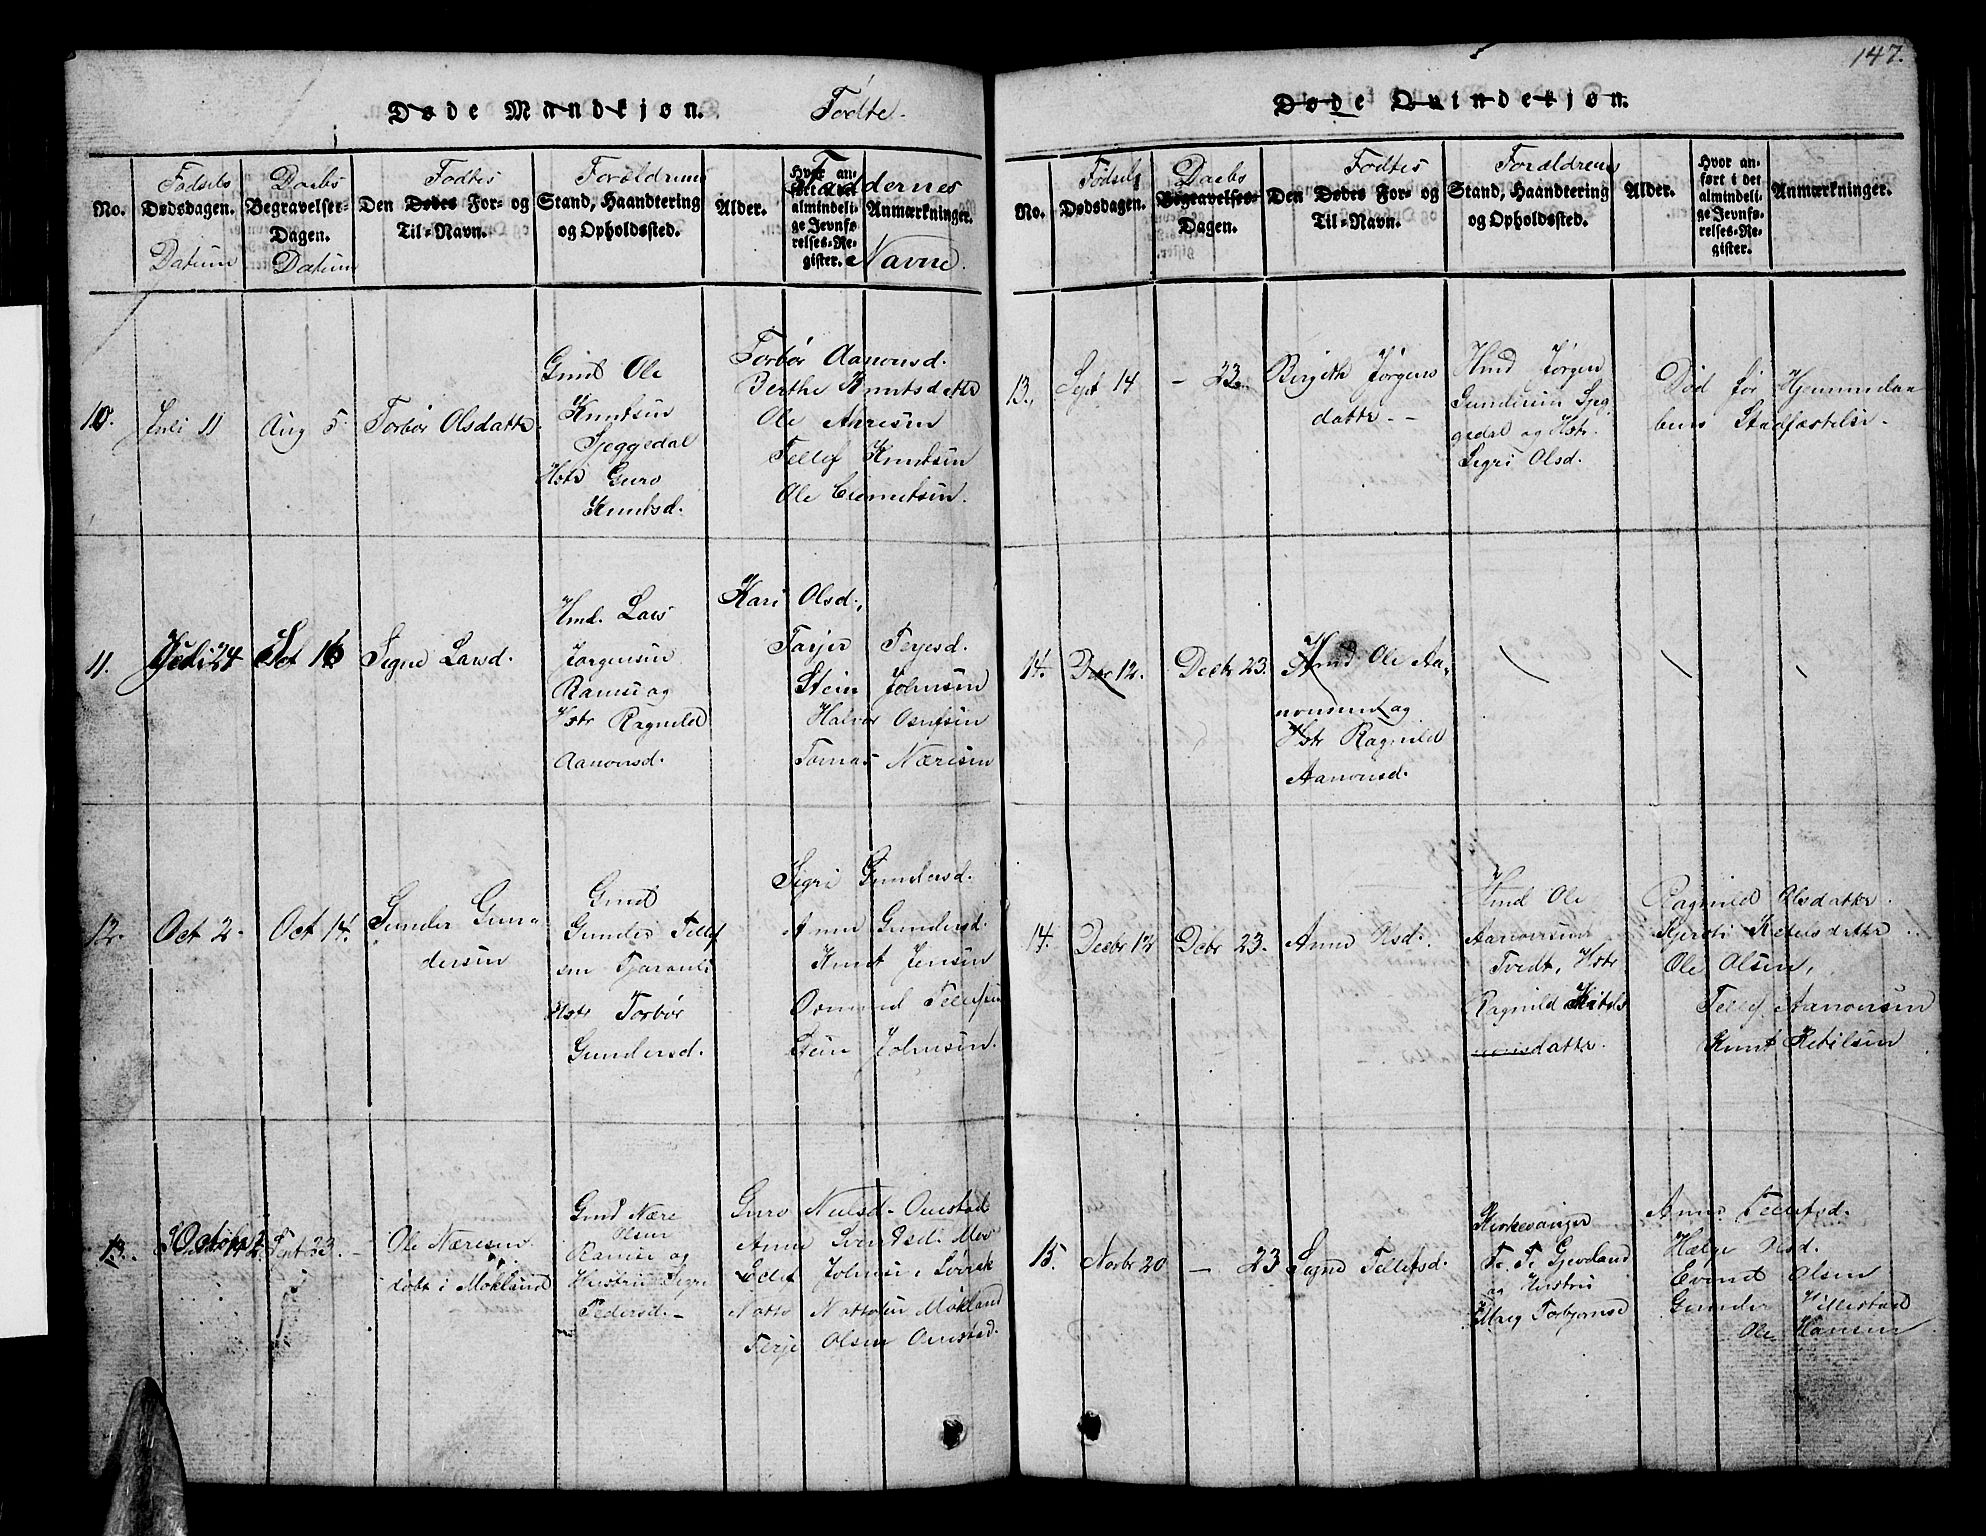 147.
Døde Mandkjøn. Fødte.
No.
Fødsels
Dødsdagen.
Datum
Daabs
Begravelses-
Dagen.
Datum
Fødtes
Den Dødes For- og
Til-Navn.
Forældrenes
Stand, Haandtering
og Opholdssted.
Alder.
Hvor an-
ført i det
almindeli-
ge Jevnfø-
relses-Re-
gister.
Faddernes
Anmærkninger.
Navne.
10.
Juli 11
Aug 5.
Torbør Olsdattr.
Gmd Ole
Knutsen
Sjeggedal
Hstr Guro
Knutsd.
Torbør Aanonsd.
Berthe Knutsdattr
Ole Aaresen
Tellef Knutsen
Ole
11.
Juli 24
Oct 16
Signe Larsd.
Hmd. Lars
Jørgensen
Ramse og
Hstr Ragnild
Aanonsd.
Kari Olsd.
Tarjer Terjesd.
Stein Johnsen
Halvor Osufsen
Tomas Næresen
12.
Oct 2.
Oct 14.
Gunder Gun-
dersen
Gmd
Gunder Tellef
sen Tjaransli
Hstr Torbør
Gundersd.
Sigri Gundersd.
Anne Gundersd.
Knut Jensen
Osmund Tellefsen
Stein Johnsen.
13.
Octobr 2
Sept 23.
Ole Næresen
døbt i Mokland
Gmd Nære
Olsen
Ramse og
Hustru Sigri
Pedersd.
Guro Nielsd. Omstad
Anne Svendsd. Mos
Edlef Johnsen Løvrak
Natto Nattosen Mokland
Terje Olsen Omstad.
Døde Qvindekjøn.
No.
Fødsels
Dødsdagen.
Daabs
Begravelses-
Dagen.
Fødtes
Den Dødes For- og
Til-Navn.
Forældrenes
Stand, Haandtering
og Opholdssted.
Alder.
Hvor an-
ført i det
almindeli-
ge Jevnfø-
relses-Re-
gister.
Anmærkninger.
13.
Sept 14
- 23.
Birgith Jørgens
dattr. -
Hmd Jørgen
Gundersen Sjeg
gedal og Hstr.
Sigri Olsd.
Død før Hjemmedaa
bens Stadfæstelse.
14.
Dbr 12.
Decbr 23.
Hmd Ole Aa-
nonsen og
Hstr Ragnild
Aanonsd.
14.
Decbr 12
Debr 23.
Anne Olsd.
Hmd Ole
Aanonsen
Tvedt, Hstr
Ragnild Kitels
dattr.
Ragnild Olsdattr.
Kjersti Ketelsdattr
Ole Olsen,
Tellef Aanonsen
Knut Ketilsen
15.
Norbr 20
- 23
Signe Tellefsd.
Kirkesanger
T. T. Gjevland
og Hustru
Marg Torbjørnsd
Anne Tellefsd.
Hælge Olsd.
Evind Olsen
Gunder Hillestad
Ole Hansen